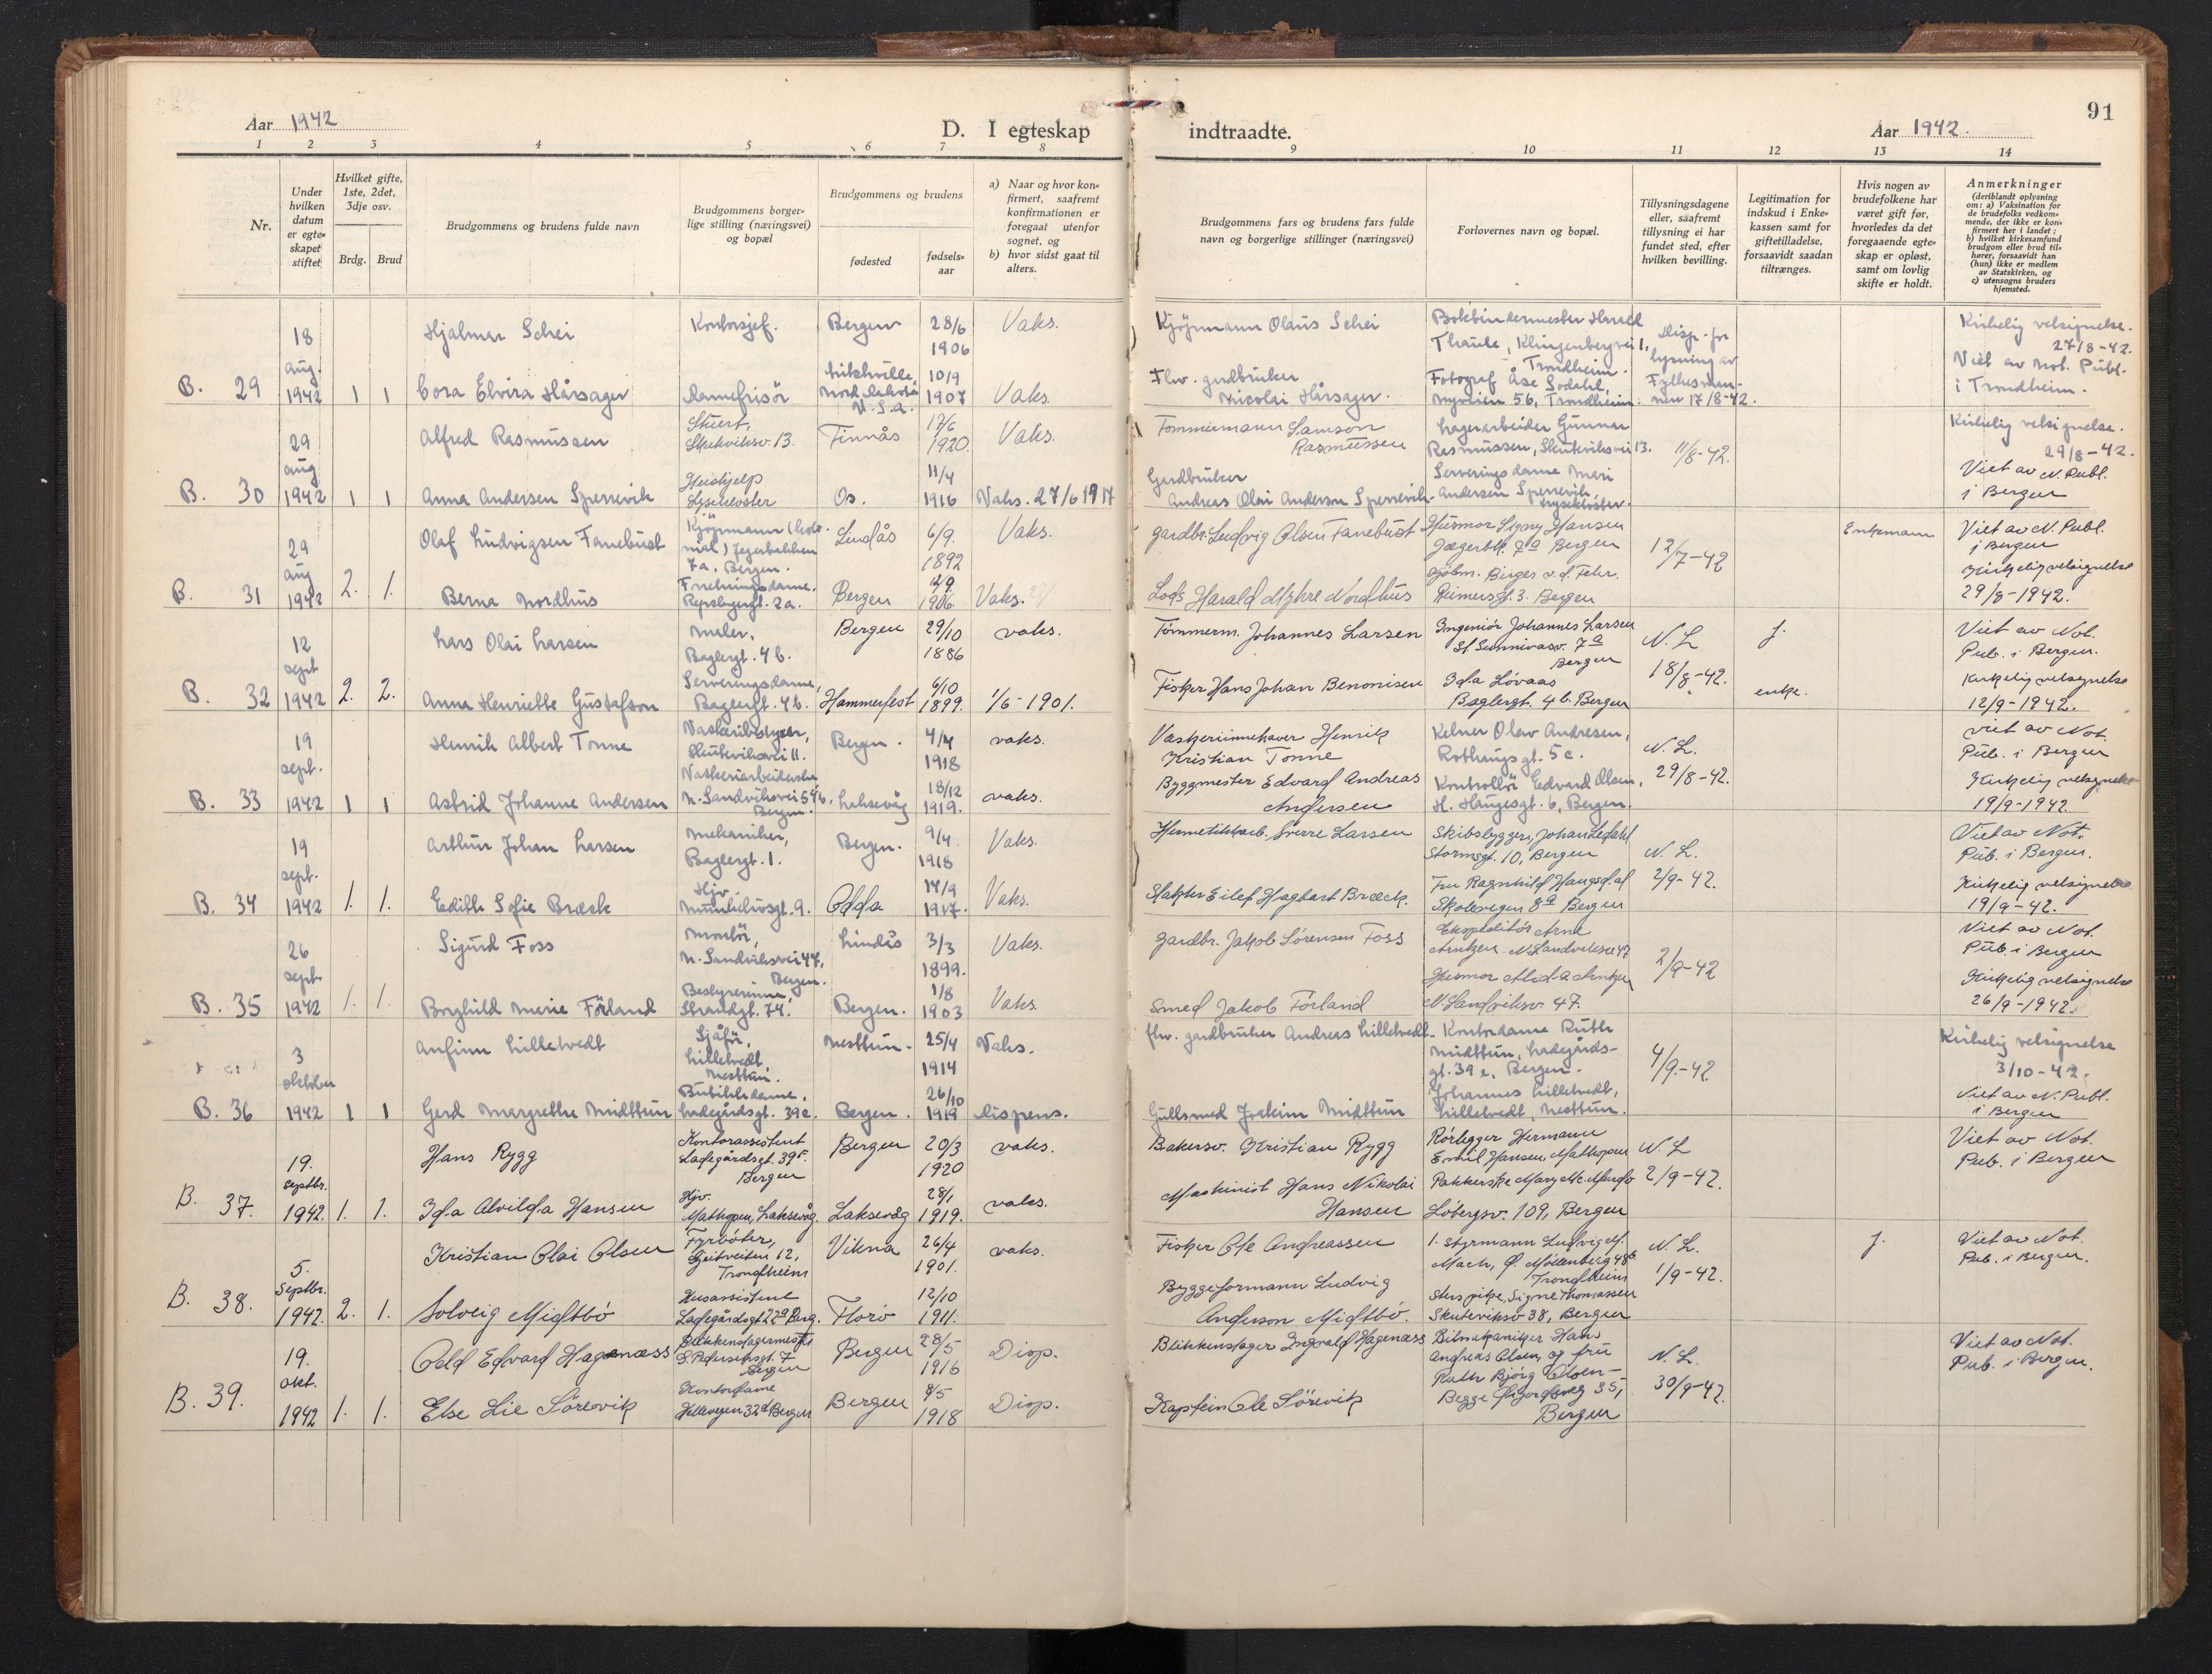 91
Aar 1942
D. I egteskap
indtraadte.
Aar 1942.
1 2 3 4 5 6 7 8
9 10 11 12 13 14
Nr.
Under
hvilken
datum
er egte-
skapet
stiftet
Hvilket gifte,
1ste, 2det,
3dje osv.
Brdg. Brud
Brudgommens og brudens fulde navn
Brudgommens borger-
lige stilling (næringsvei)
og bopæl
Brudgommens og brudens
fødested
fødsels-
aar
a) Naar og hvor kon-
firmert, saafremt
konfirmationen er
foregaat utenfor
sognet, og
b) hvor sidst gaat til
alters.
Brudgommens fars og brudens fars fulde
navn og borgerlige stillinger (næringsvei)
Forlovernes navn og bopæl.
Tillysningsdagene
eller, saafremt
tillysning ei har
fundet sted, efter
hvilken bevilling.
Legitimation for
indskud i Enke-
kassen samt for
giftetilladelse,
forsaavidt saadan
tiltrænges.
Hvis nogen av
brudefolkene har
været gift før,
hvorledes da det
foregaaende egte-
skap er opløst,
samt om lovlig
skifte er holdt.
Anmerkninger
(deriblandt oplysning
om: a) Vaksination for
de brudefolks vedkom-
mende, der ikke er kon-
firmert her i landet;
b) hvilket kirkesamfund
brudgom eller brud til-
hører, forsaavidt han
(hun) ikke er medlem
av Statskirken, og
c) utensogns bruders
hjemsted.
B. 29
18
aug.
1942
1 1
Hjalmar Schei
Kontorsjef.
Bergen
28/6
1906
Vaks.
Cora Elvira Hårsager
Damefrisör
Nord Dakota
U.S.A.
10/9
1907
Vaks.
Kjöpmann Olaus Schei
Flw. gardbruker
Nicolai Hårsager.
Bokbindermester Harald
Thaule, Klingenbergvei 1,
Trondheim.
Fotograf Åse Sodahl,
56, Trondheim.
Disp. for
lysning av
Fylkesman-
nen 17/8-42.
Kirkelig velsignelse.
27/8-42.
Viet av Not. Publ.
i Trondheim.
B. 30
29
aug
1942
1 1
Alfred Rasmussen
Stuert,
Skutviksv. 13.
Finnås
17/6
1920.
Vaks.
Anna Andersen Sperrevik
Heishjelp
Lyseklöster
Os.
11/4
1916
Vaks. 27/6 1917
Tömmermann Samson
Rasmussen
Gardbruker
Andreas Olai Anderson Sperrevik
Lagerarbeider Gunnar
Rasmussen, Skutviksvei 13.
Serveringsdame Mari
Andersen Sperrevik,
Lyseklöster.
11/8-42.
Kirkelig velsignelse.
29/8-42.
Viet av N. Publ.
i Bergen
B. 31
29
aug
1942
2. 1.
Olaf Ludvigsen Fanebust
Kjöpmann
Jegerbakken
7a. Bergen.
Lindås
6/9.
1892
Vaks.
Berna Nordhus
Forretningsdame.
Repslagergt. 2a.
Bergen
12/9
1906.
Vaks.
Gardbr. Ludvig Olsen Fanebust
Lods Harald Myhre Nordhus
Husmor Signy Hansen
Jægerbk. 7a Bergen
Kjöbm. Birger v.d. Fehr.
Reimersgt. 3. Bergen
12/7-42
Enkemann
Viet av N. Publ.
i Bergen
Kirkelig velsignelse
29/8-1942.
B. 32
12
sept
1942
2. 2.
Lars Olai Larsen
Maler,
Baglergt. 4b.
Bergen
29/10
1886
vaks.
Anna Henriette Gustafson
Serveringsdame,
Baglergt. 4b.
Hammerfest
6/10
1899.
1/6-1901.
Tömmerm. Johannes Larsen
Fisker Hans Johan Benonisen
Ingeniör Johannes Larsen
St Sunnivasv. 7a
Bergen
Ida Lövaas
Baglergt. 4b. Bergen
N. L
18/8-42.
f.
enke.
Viet av Not.
Pub. i Bergen.
Kirkelig velsignelse
12/9-1942.
B. 33
19
sept.
1942
1 1
Henrik Albert Tonne
Vaskeribestyrer,
Skuteviksvei 11.
Bergen.
4/4
1918
vaks.
Astrid Johanne Andersen
Vaskeriarbeiderske
N. Sandviksvei 54b,
Bergen.
Laksevåg
18/12
1919.
vaks.
Vaskeriinnehaver Henrik
Kristian Tonne
Byggmester Edvard Andreas
Andersen
Kelner Olav Andresen,
Rothaugsgt. 5c.
Kontrollör Edvard Olsen,
H. Haugesgt. 6, Bergen.
N. L.
29/8-42.
Viet av Not.
Pub. i Bergen
Kirkelig velsignelse
19/9-1942.
B. 34
19
sept.
1942
1. 1.
Arthur Johan Larsen
Mekaniker,
Baglergt. 1.
Bergen.
9/4.
1918
Vaks.
Edith Sofie Bræck
Hjv.
9.
Odda
14/9
1917.
Vaks.
Hermetikkarb. Sverre Larsen
Slakter Eilef Hagbart Bræck.
Skibsbygger, Johan Ledahl
Stormsgt. 10, Bergen
Fru Ragnhild Haugsdal
Skolevegen 8a Bergen
N. L.
2/9-42.
Viet av Not.
Pub. i Bergen.
Kirkelig velsignelse
19/9-42.
B. 35
26
sept
1942
1. 1.
Sigurd Foss
Montör,
N. Sandviksvei 47,
Bergen.
Lindås
3/3
1899.
Vaks.
Borghild Marie Förland
Bestyrerinne,
Strandgt. 74.
Bergen.
1/8
1903
Vaks.
Gardbr. Jakob Sörensen Foss
Smed Jakob Förland
Ekspeditör Arne
Arntzen N. Sandviksv 47
Husmor Alida Arntzen
N. Sandviksv. 47.
2/9-42
Viet av Not.
Pub. i Bergen
Kirkelig velsignelse
26/9-1942.
B. 36
3
oktober
1942
1 1
Anfinn Lilletvedt
Sjåför,
Lilletvedt,
Nesttun.
Nesttun.
25/4
1914
Vaks.
Gerd Margrethe Midttun
Butikkdame.
Ladegårdsgt. 39e.
Bergen.
26/10
1919
Dispens.
flw. gardbruker Andreas Lilletvedt
Gullsmed Joakim Midttun
Kontordame Ruth
Midttun, Ladegårds-
gt. 39e, Bergen.
Johannes Lilletvedt,
Lilletvedt, Nesttun.
4/9.-42.
Kirkelig velsignelse
3/10-42.
Viet av N. Publ.
i Bergen
B. 37.
19.
Septbr.
1942.
1. 1.
Hans Rygg
Kontorassistent
Ladegårdsgt. 39f.
Bergen
Bergen
20/3
1920
vaks.
Ida Alvilda Hansen
Hjv.
Mathopen, Laksevåg.
Laksevåg
28/1
1919.
vaks.
Bakersv. Kristian Rygg
Maskinist Hans Nikolai
Hansen
Rörlegger Hermann
Emil Hansen, Mathopen
Pakkerske Mary
Löbergsv. 109, Bergen
N. L
2/9-42.
Viet av Not.
Pub. i Bergen
B. 38.
5.
Septbr.
1942.
2. 1.
Kristian Olai Olsen
Fyrböter,
Geitveiten 12,
Trondheim
Vikna
26/4
1901.
vaks.
Solveig Midtbö
Husassistent
Ladegårdsgt 22a Berg.
Florö
12/10
1911.
Fisker Ole Andreassen
Byggeformann Ludvig
Anderson Midtbö.
1. Styrmann Ludvig M.
Mach, Ø. Möllenberg 48b
Trondheim
Signe Thomassen
Skuteviksv 38, Bergen
N. L.
1/9-42.
f.
Viet av Not.
Pub. i Bergen.
B. 39.
19.
Okt.
1942
1. 1.
Odd Edvard Hagenæss
Blikkenslagermester
S. Pedersensgt. 7
Bergen
Bergen
28/5
1916
Disp.
Else Lie Sörevik
Kontordame
Hellevegen 32d Bergen
Bergen
8/5
1918
Disp.
Blikkenslager Ingvald Hagenæss
Kaptein Ole Sörevik
Bilmekaniker Hans
Andreas Olsen, og fru
Ruth Bjørg Olsen-
Begge 35,
Bergen
N. L.
30/9-42.
Viet av Not.
Pub. i Bergen.